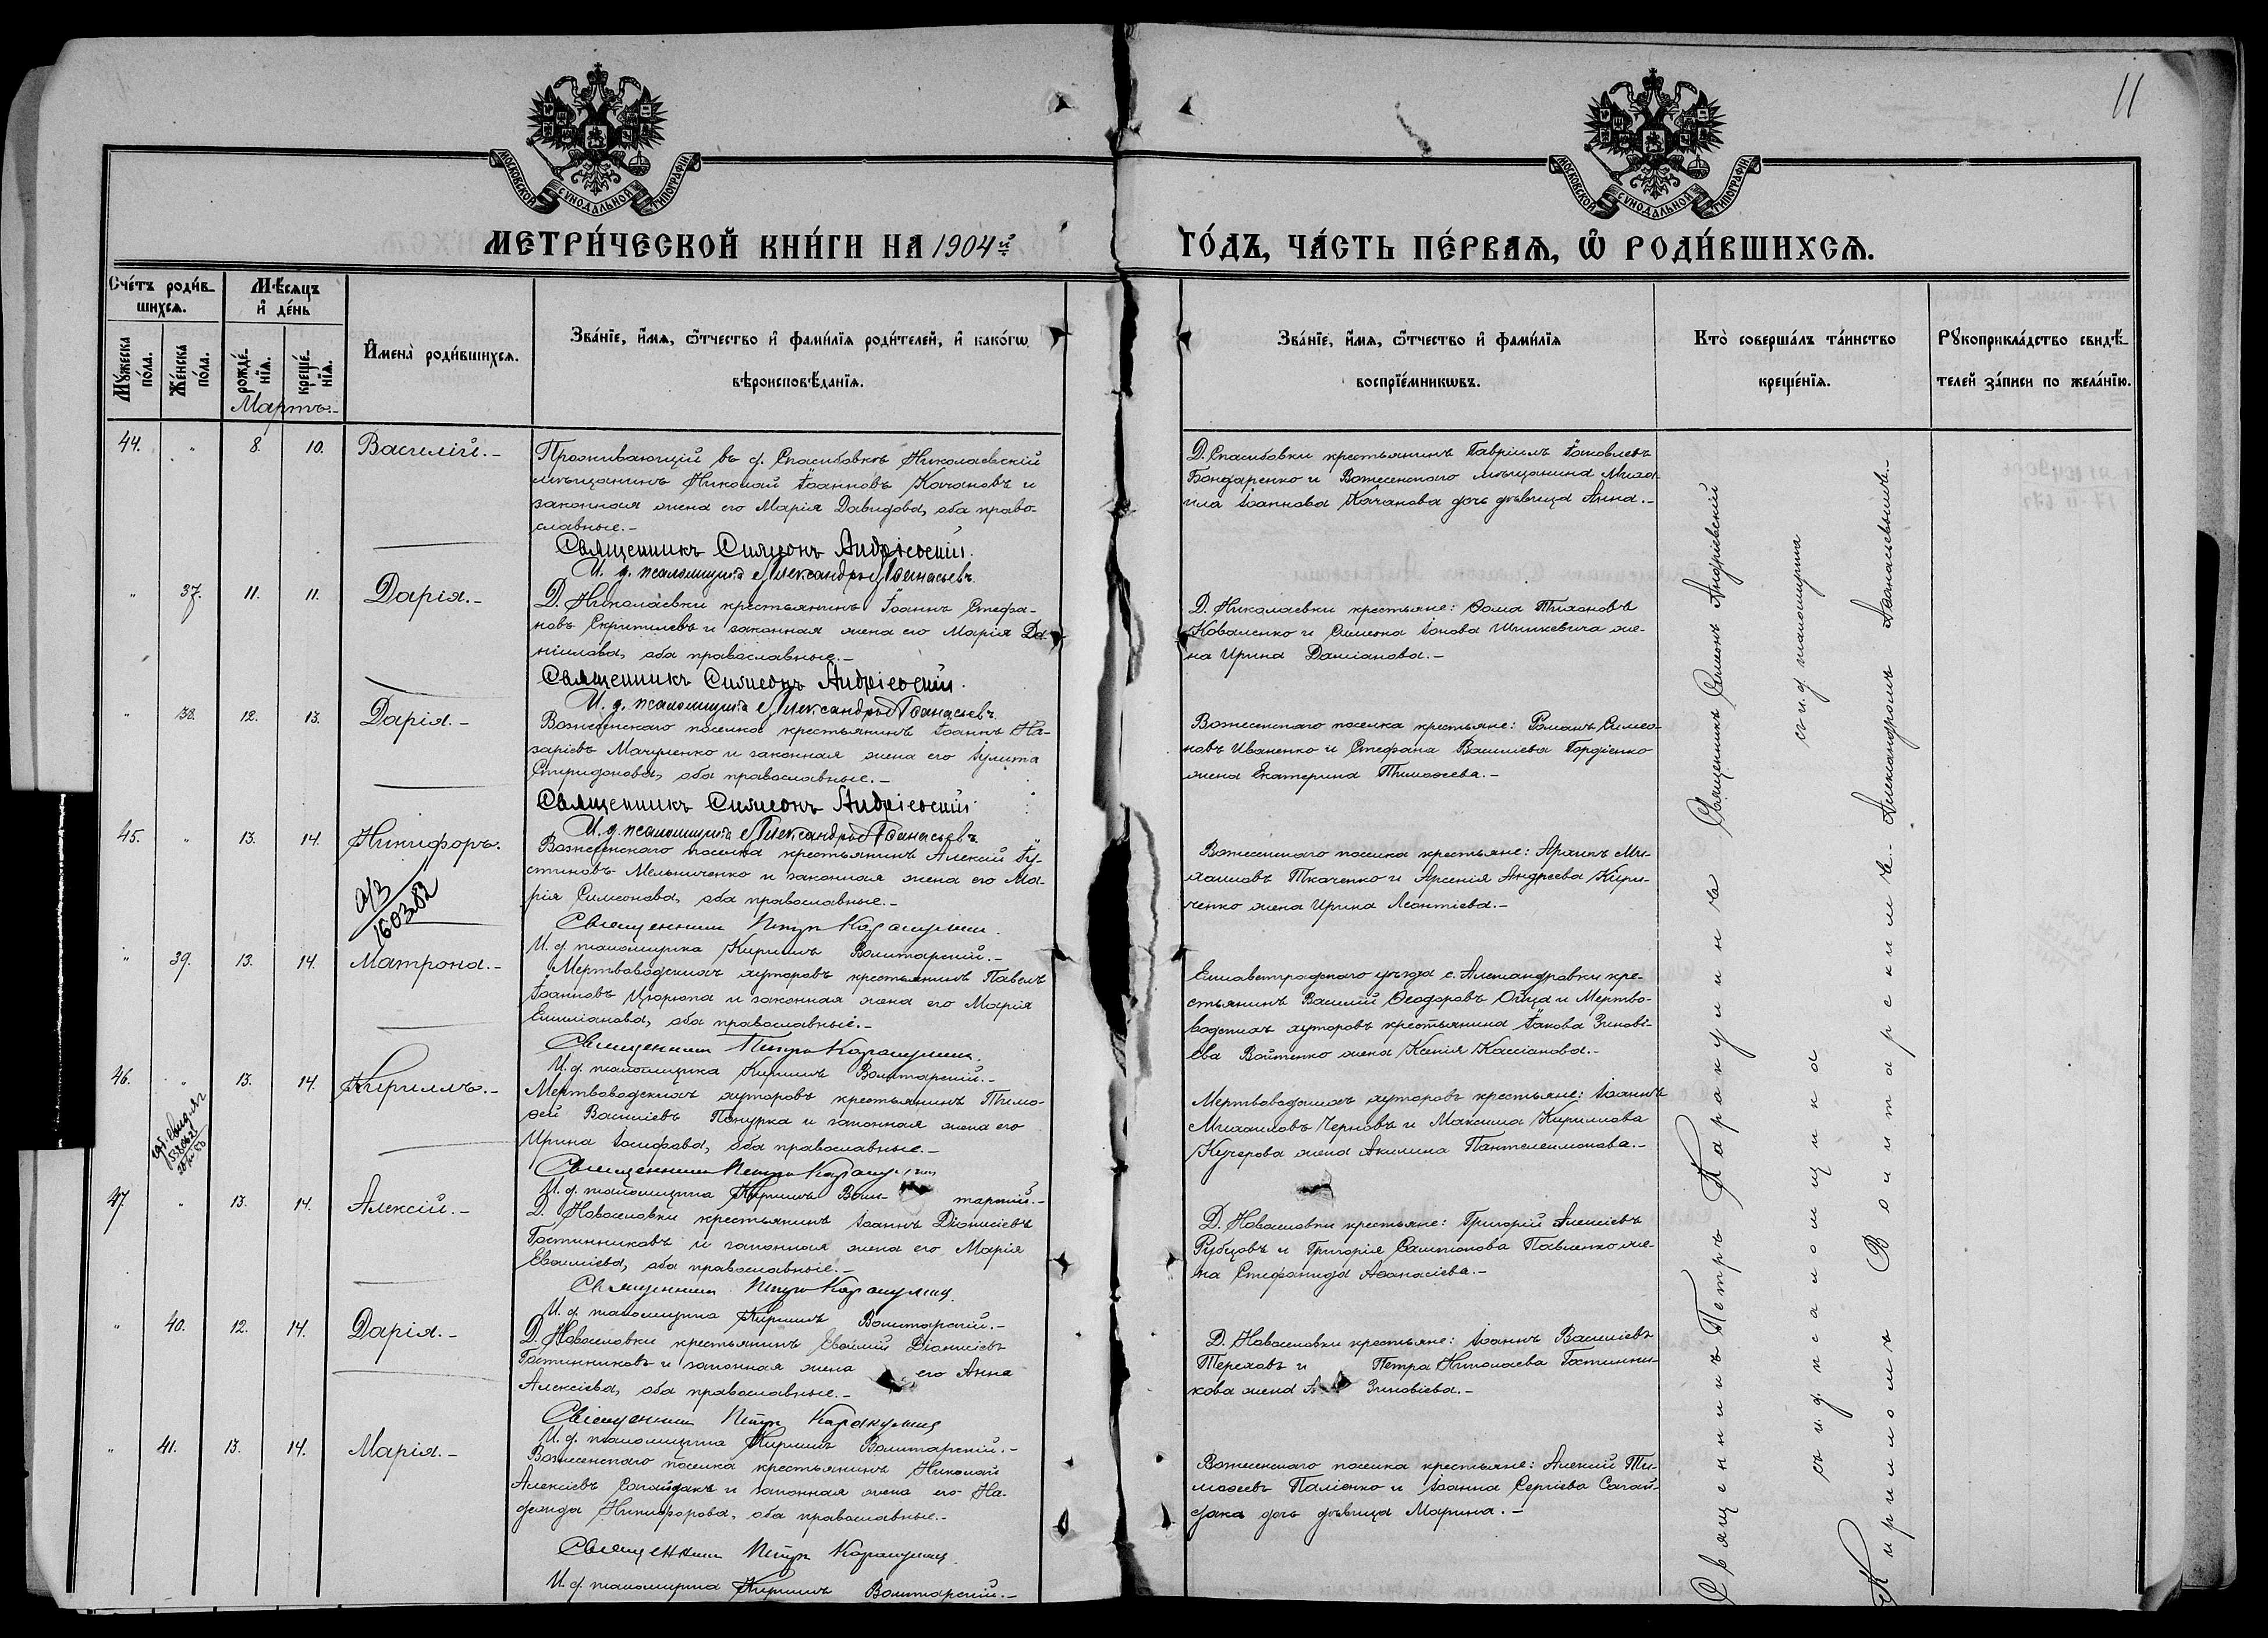 11
МОСКОВСКОЙ СУНОДАЛЬНОЙ ТИПОГРАФІИ
МОСКОВСКОЙ СУНОДАЛЬНОЙ ТИПОГРАФІИ
МЕТРИ́ЧЕСКОЙ КНИ́ГИ НА 1904й
ГО́ДЪ, ЧА́СТЬ ПЕ́РВАѦ, Ѿ РОДИ́ВШИХСѦ.
Сче́тъ роди́в-
шихсѧ.
Мꙋ́жеска по́ла.
Же́нска по́ла.
Мѣ́сѧцъ и҆ де́нь
рожде́-нїѧ.
креще́-нїѧ.
И҆мена̀ роди́вшихсѧ.
Зва́нїе, и҆́мѧ, ѻ҆́тчество и҆ фами́лїѧ роди́телей, и҆ како́гѡ
вѣроисповѣ́данїѧ.
Зва́нїе, и҆́мѧ, ѻ҆́тчество и҆ фами́лїѧ
воспрїе́мникѡвъ.
Кто̀ соверша́лъ та́инство
креще́нїѧ.
Рꙋкоприкла́дство свидѣ́-
телей за́писи по жела́нїю.
Мартъ.-
44. " 8. 10. Василій.-
Проживающій въ д. Спасибовкѣ Николаевскій
мѣщанинъ Николай Іоанновъ Качановъ и
законная жена его Марія Давидова, оба право-
славные.-
Священникъ Симеонъ Андріевскій.
И. д. псаломщика Александръ Аѳанасьевъ.
Д. Спасибовки крестьянинъ Гавріилъ Іаковлевъ
Бондаренко и Вознесенскаго мѣщанина Миха-
ила Іоаннова Качанова дочь дѣвица Анна.-
" 37. 11. 11. Дарія.-
Д. Николаевки крестьянинъ Іоаннъ Стефа-
новъ и законная жена его Марія Да-
ніилова, оба православные.-
Священникъ Симеонъ Андріевскій.
И. д. псаломщика Александръ Аѳанасьевъ.
Д. Николаевки крестьяне: Ѳома Тихоновъ
Коваленко и Симеона Іонова Шинкевича же-
на Ирина Даміанова.-
" 38. 12. 13. Дарія.-
Вознесенскаго поселка крестьянинъ Іоаннъ На-
заріевъ Мачуленко и законная жена его Іулита
Спиридонова, оба православные.-
Священникъ Симеонъ Андріевскій
И. д. псаломщика Александръ Аѳанасьевъ.
Вознесенскаго поселка крестьяне: Романъ Симео-
новъ Иваненко и Стефана Василіева Гордіенко
жена Екатерина Тимоѳеева.-
45. " 13. 14. Никифоръ.
а/з
160382
Вознесенскаго поселка крестьянинъ Алексій Іу-
стиновъ Мельниченко и законная жена его Ма-
рія Симеонова, оба православные.-
Священникъ Петръ Каракулинъ.
И. д. псаломщика Кириллъ Волитарскій.-
Вознесенскаго поселка крестьяне: Архипъ Ми-
хаиловъ Ткаченко и Арсенія Андреева Кири-
ченко жена Ирина Леонтіева.-
" 39. 13. 14. Матрона.-
Мертвоводскихъ хуторовъ крестьянинъ Павелъ
Іоанновъ Цюрюпа и законная жена его Марія
Емиліанова, оба православные.-
Священникъ Петръ Каракулинъ.
И. д. псаломщика Кириллъ Волитарскій.-
Елисаветградскаго уѣзда с. Александровки кре-
стьянинъ Василій Ѳеодоровъ и Мертво-
водскихъ хуторовъ крестьянина Іакова Зинові-
ева Войтенко жена Ксенія Кассіанова.-
46. " 13. 14. Кириллъ.-
Мертвоводскихъ хуторовъ крестьянинъ Тимо-
ѳей Василіевъ Понурка и законная жена его
Ирина Іосифова, оба православные.-
Священникъ Петръ Каракулинъ
И. д. псаломщика Кириллъ Волитарскій.-
Мертвоводскихъ хуторовъ крестьяне: Іоаннъ
Михаиловъ Черновъ и Максима Кириллова
Кучерова жена Акилина Пантелеимонова.-
47. " 13. 14. Алексій.-
Д. Новоселовки крестьянинъ Іоаннъ Діонисіевъ
Гостинниковъ и законная жена его Марія
Евѳиміева, оба православные.-
Священникъ Петръ Каракулинъ.
И. д. псаломщика Кириллъ Волитарскій.-
Д. Новоселовки крестьяне: Григорій Алексіевъ
Рубцовъ и Григорія Сампсонова Павленко же-
на Стефанида Аѳанасіева.-
" 40. 12. 14. Дарія.-
Д. Новоселовки крестьянинъ Евѳимій Діонисіевъ
Гостинниковъ и законная жена его Анна
Алексіева, оба православные.-
Священникъ Петръ Каракулинъ
И. д. псаломщика Кириллъ Волитарскій.-
Д. Новоселовки крестьяне: Іоаннъ Василіевъ
Тереховъ и Петра Николаева Гостинни-
кова жена Зиновіева.-
" 41. 13. 14. Марія.-
Вознесенскаго поселка крестьянинъ Николай
Алексіевъ Сагайдакъ и законная жена его На-
дежда Никифорова, оба православные.-
Священникъ Петръ Каракулинъ.
И. д. псаломщика Кириллъ Волитарскій.-
Вознесенскаго поселка крестьяне: Алексій Ти-
моѳеевъ Паліенко и Іоанна Сергіева Сагай-
дака дочь дѣвица Марина.-
Священникъ Симеонъ Андріевскій
съ и. д. псаломщика
Александромъ Аѳанасьевымъ.-
Священникъ Петръ Каракулинъ
съ и. д. псаломщика
Кирилломъ Волитарскимъ.-